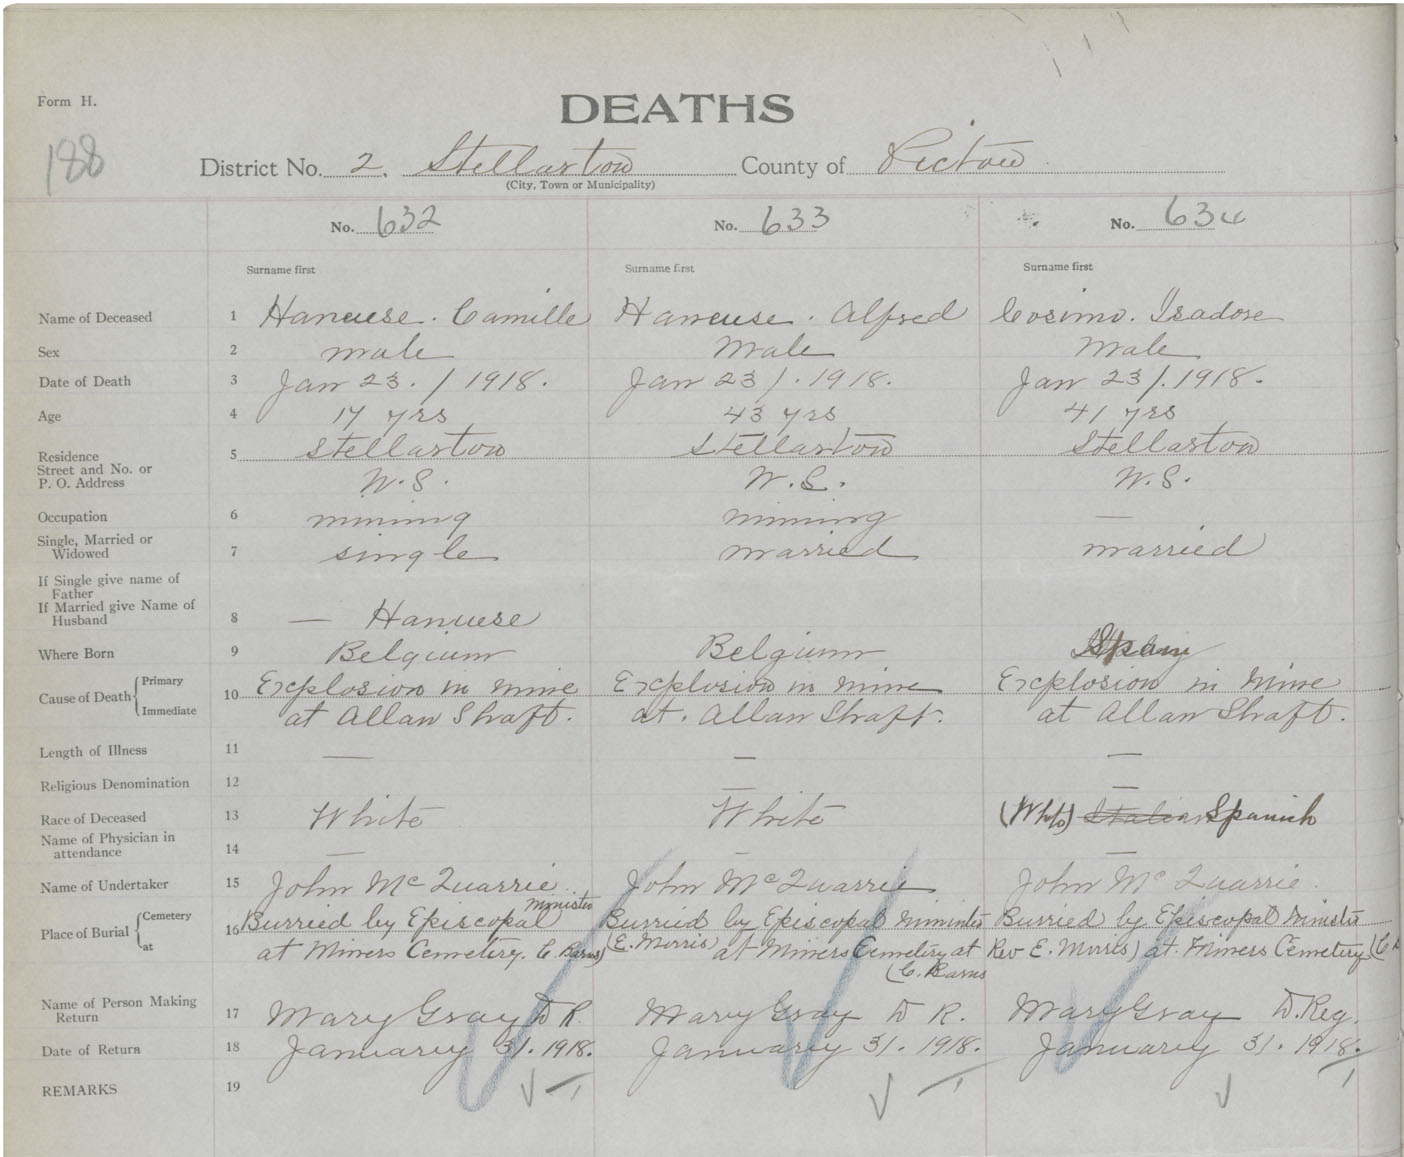 Form H.
DEATHS
188
District No. 2. Stellarton County of Pictou
(City, Town or Municipality)
No. 632 No. 633 No. 634
Surname first Surname first Surname first
Name of Deceased 1 Hanuse. Camille Hanuse. Alfred Cosimo. Isadore
Sex 2 male Male Male
Date of Death 3 Jan 23./1918. Jan 23/.1918. Jan 23/.1918.
Age 4 17 yrs 43 yrs 41 yrs
Residence 5 Stellarton Stellarton Stellarton
Street and No. or
P. O. Address N.S. N.S. N.S.
Occupation 6 mining mining —
Single, Married or
Widowed 7 single married married
If Single give name of
Father
If Married give Name of
Husband 8 — Hanuse
Where Born 9 Belgium Belgium Spain
Cause of Death { Primary 10 Explosion in mine Explosion in mine Explosion in Mine
Immediate at Allan Shaft. at. Allan Shaft. at Allan Shaft.
Length of Illness 11 — — —
Religious Denomination 12 — —
Race of Deceased 13 White White (White) Italian Spanish
Name of Physician in
attendance 14 — — —
Name of Undertaker 15 John McQuarrie John McQuarrie John McQuarrie.
Place of Burial { Cemetery 16 Burried by Episcopal minister Burried by Episcopal minister Burried by Episcopal Minister
at at Miners Cemetery. C. Barns) (E. Morris) at Miners Cemetery at Rev E. Morris) at Miners Cemetery (C. B
(C. Barns
Name of Person Making
Return 17 Mary Gray D R. Mary Gray D R. Mary Gray D. Reg.
Date of Return 18 January 31. 1918. January 31. 1918. January 31. 1918.
REMARKS 19